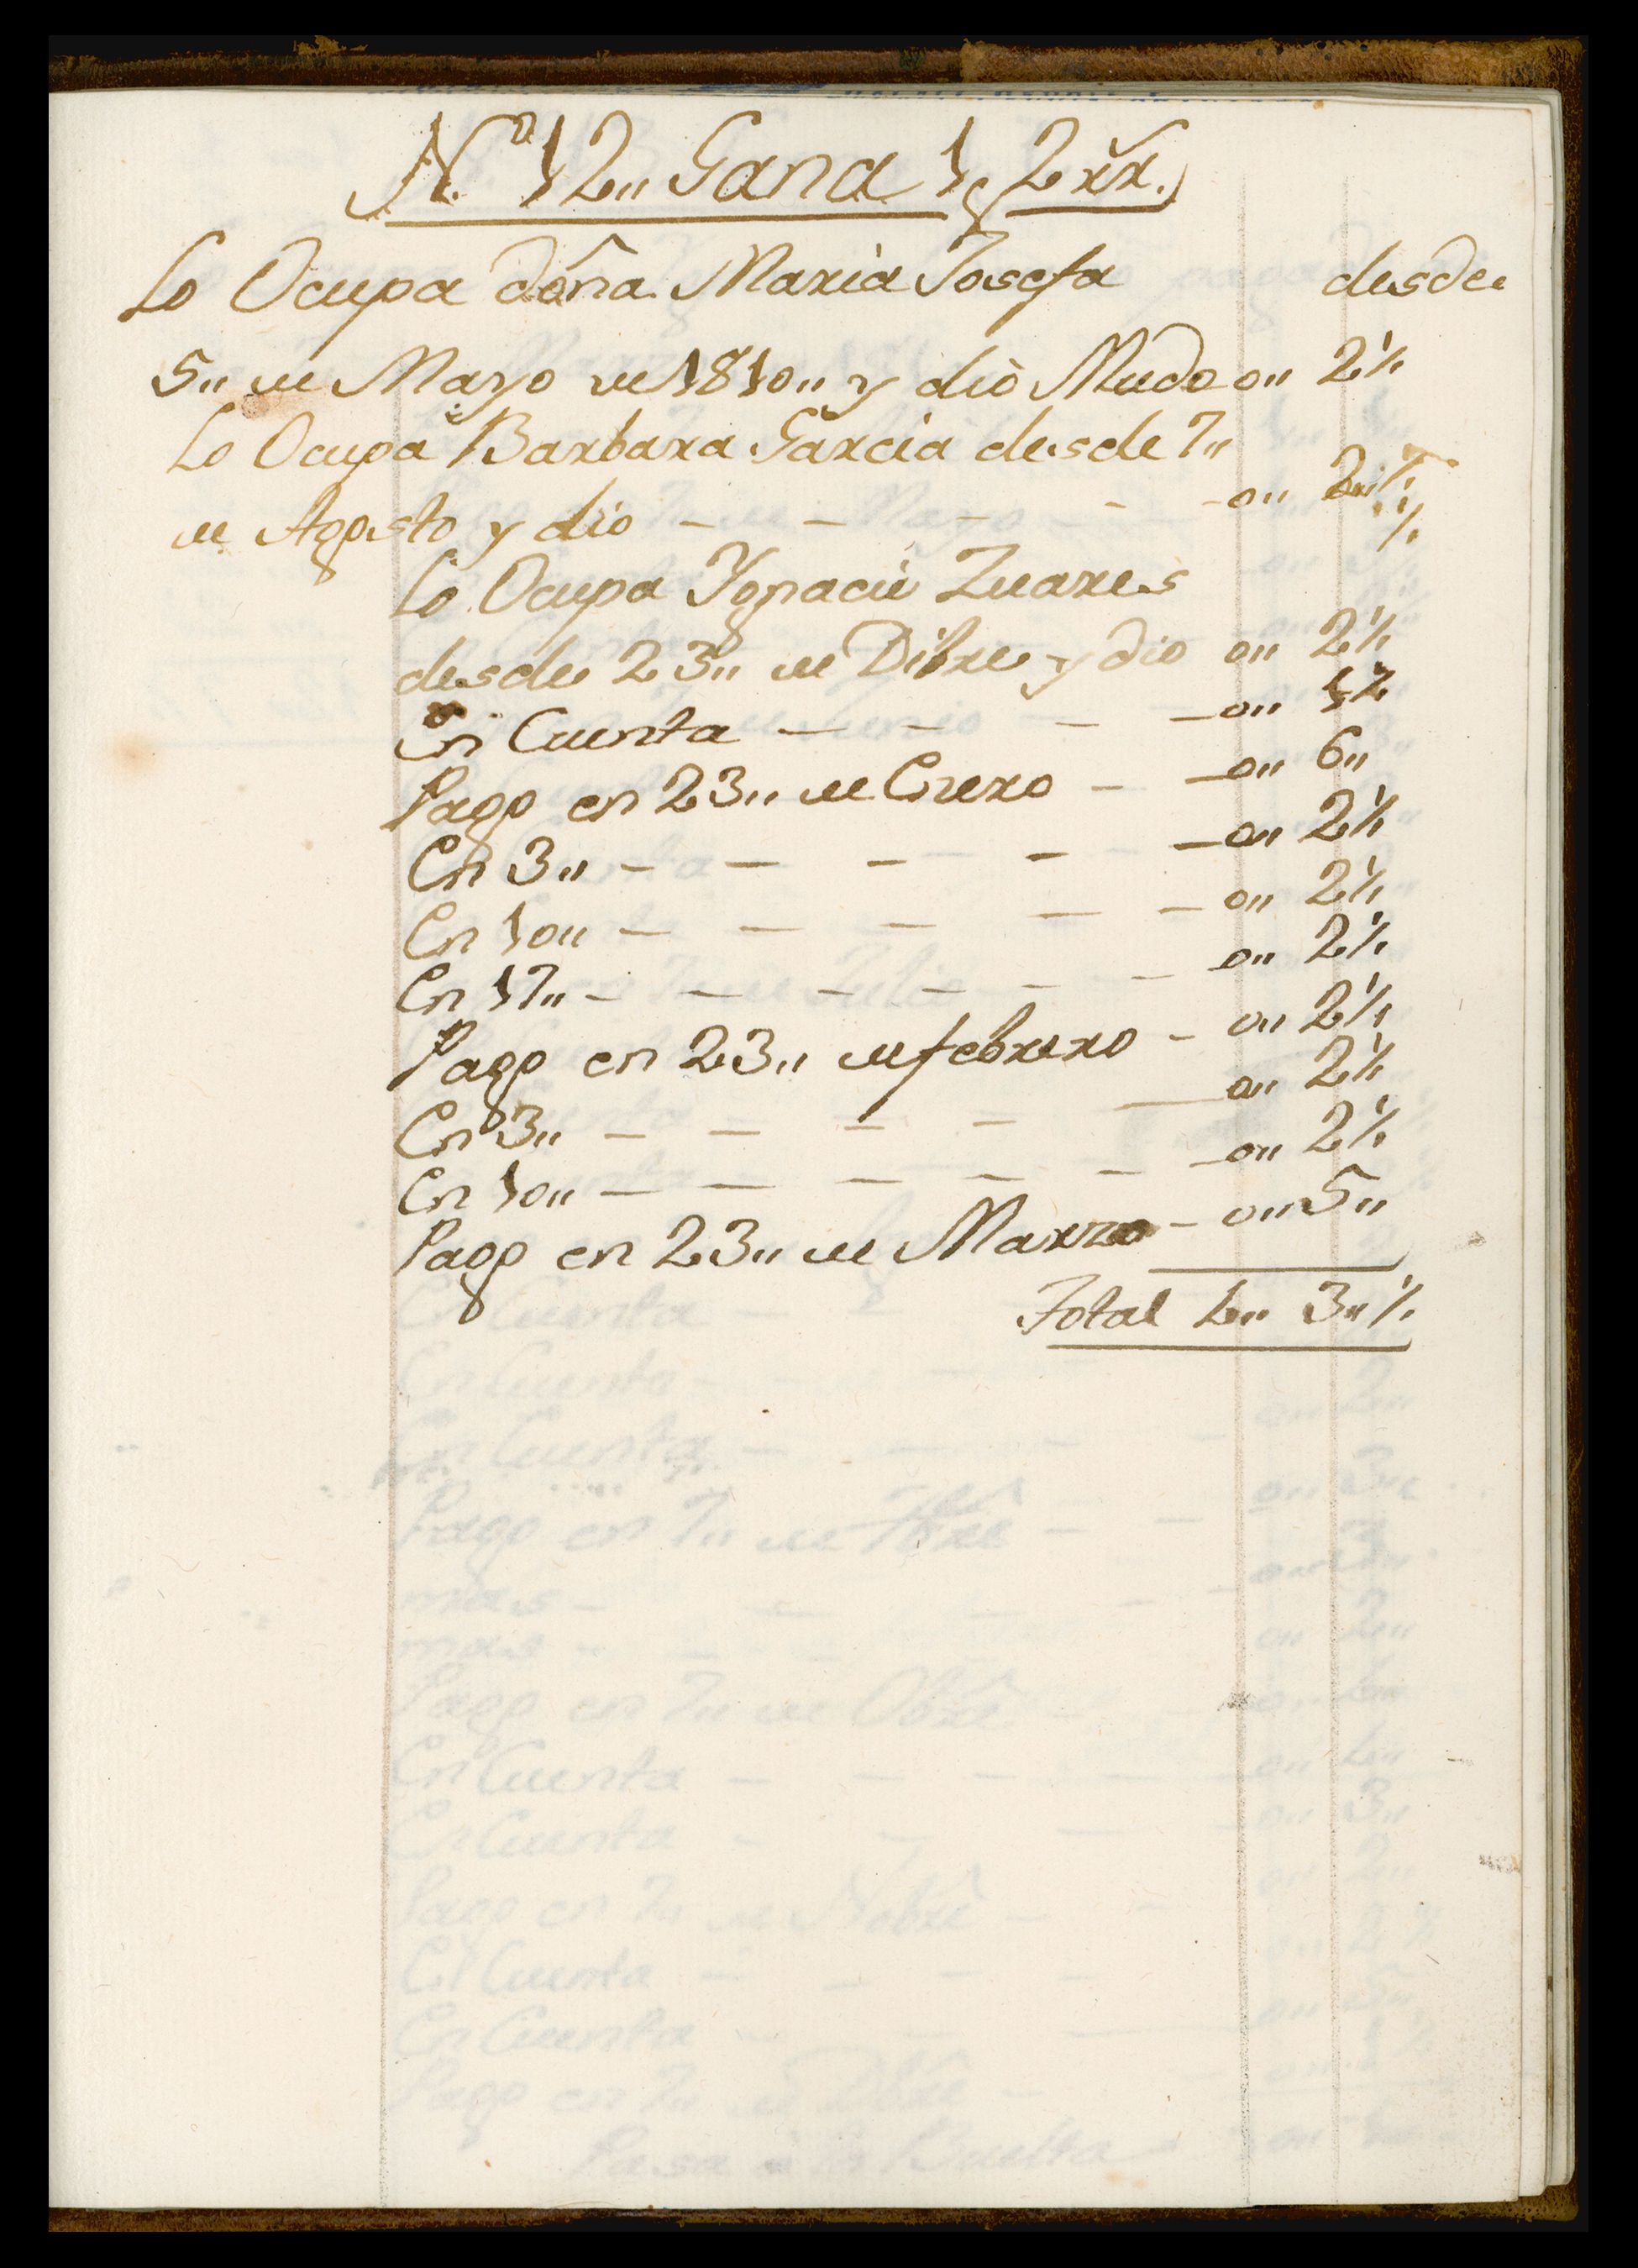 N.º 12,, Gana 1, 2 rr.
Lo Ocupa doña Maria Josefa desde
5,, de Mayo de 1810,, y dio Mudo o,, 2½
Lo Ocupa Barbara Garcia desde 7,,
de Agosto y dio — — — — — o,, 2½
½
Lo Ocupa Ygnacio Zuares
desde 23,, de Dibre y dio o,, 2½
En Cuenta — — — — o,, 12
Pago en 23,, de Enero — — o,, 6,,
En 3,, — — — — — o,, 2½
En 10,, — — — — — o,, 2½
En 17,, — — — — — — o,, 2½
Pago en 23,, de febrero — o,, 2½
En 3,, — — — — — o,, 2½
En 10,, — — — — — — o,, 2½
Pago en 23,, de Marzo — o,, 5,,
Total 4,, 3,,½